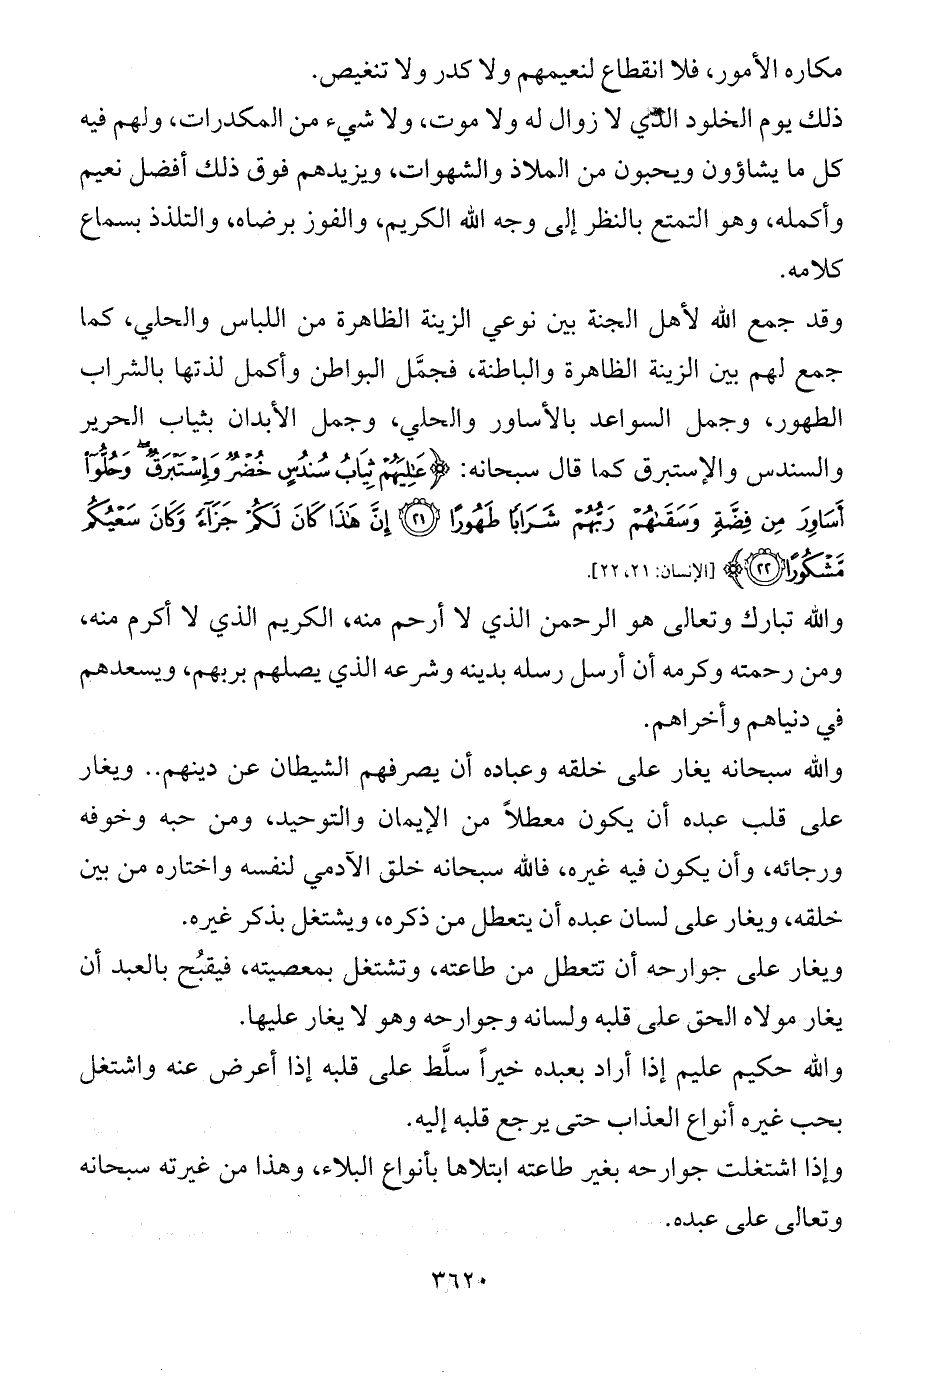 مكاره الأمور، فلا انقطاع لنعيمهم ولا كدر ولا تنغيص.
ذلك يوم الخلود الذي لا زوال له ولا موت، ولا شيء من المكدرات، ولهم فيه
كل ما يشاؤون ويحبون من الملاذ والشهوات، ويزيدهم فوق ذلك أفضل نعيم
وأكمله، وهو التمتع بالنظر إلى وجه الله الكريم، والفوز برضاه، والتلذذ بسماع
كلامه.
وقد جمع الله لأهل الجنة بين نوعي الزينة الظاهرة من اللباس والحلي، كما
جمع لهم بين الزينة الظاهرة والباطنة، فجمَّل البواطن وأكمل لذتها بالشراب
الطهور، وجمل السواعد بالأساور والحلي، وجمل الأبدان بثياب الحرير
والسندس والإستبرق كما قال سبحانه: ﴿عَٰلِيَهُمْ ثِيَابُ سُندُسٍ خُضْرٌ وَإِسْتَبْرَقٌ ۖ وَحُلُّوٓا۟
أَسَاوِرَ مِن فِضَّةٍ وَسَقَىٰهُمْ رَبُّهُمْ شَرَابًا طَهُورًا ۝٢١ إِنَّ هَٰذَا كَانَ لَكُمْ جَزَآءً وَكَانَ سَعْيُكُم
مَّشْكُورًا ۝٢٢﴾ [الإنسان: ٢١، ٢٢].
والله تبارك وتعالى هو الرحمن الذي لا أرحم منه، الكريم الذي لا أكرم منه،
ومن رحمته وكرمه أن أرسل رسله بدينه وشرعه الذي يصلهم بربهم، ويسعدهم
في دنياهم وأخراهم.
والله سبحانه يغار على خلقه وعباده أن يصرفهم الشيطان عن دينهم.. ويغار
على قلب عبده أن يكون معطلاً من الإيمان والتوحيد، ومن حبه وخوفه
ورجائه، وأن يكون فيه غيره، فالله سبحانه خلق الآدمي لنفسه واختاره من بين
خلقه، ويغار على لسان عبده أن يتعطل من ذكره، ويشتغل بذكر غيره.
ويغار على جوارحه أن تتعطل من طاعته، وتشتغل بمعصيته، فيقبُح بالعبد أن
يغار مولاه الحق على قلبه ولسانه وجوارحه وهو لا يغار عليها.
والله حكيم عليم إذا أراد بعبده خيراً سلَّط على قلبه إذا أعرض عنه واشتغل
بحب غيره أنواع العذاب حتى يرجع قلبه إليه.
وإذا اشتغلت جوارحه بغير طاعته ابتلاها بأنواع البلاء، وهذا من غيرته سبحانه
وتعالى على عبده.
٣٦٢٠